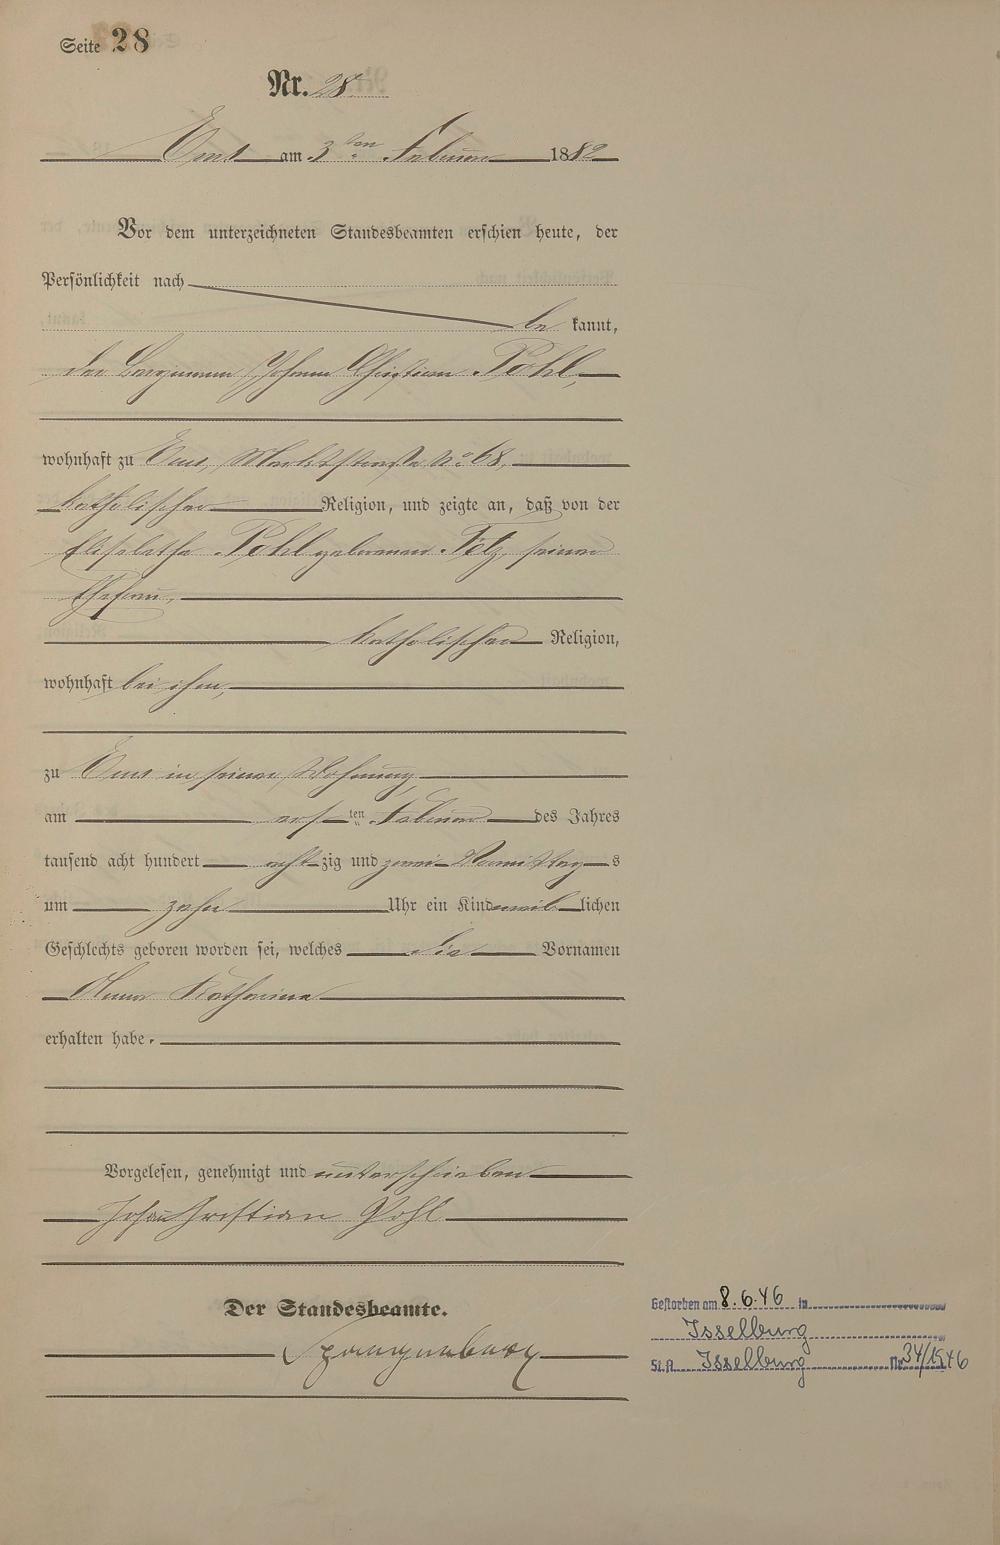 Seite 28
Nr. 28
Ems am 3ten Februar 1882
Vor dem unterzeichneten Standesbeamten erschien heute, der
Persönlichkeit nach
be kannt,
der Bergmann Johann Christian Pohl,
wohnhaft zu Ems, Marktstraße No 68,
katholischer Religion, und zeigte an, daß von der
Elisabetha Pohl geborenen Fetz, seiner
Ehefrau,
katholischer Religion,
wohnhaft bei ihm,
zu Ems in seiner Wohnung,
am ersten Februar des Jahres
tausend acht hundert achtzig und zwei Vormittags
um zehn Uhr ein Kind weiblichen
Geschlechts geboren worden sei, welches die Vornamen
Anna Katharina
erhalten habe.
Vorgelesen, genehmigt und unterschrieben
Johan Christian Pohl
Der Standesbeamte.
Spangenberg
Gestorben am 8.6.46 in
Isselburg
St.A. Isselburg Nr. 34/1946